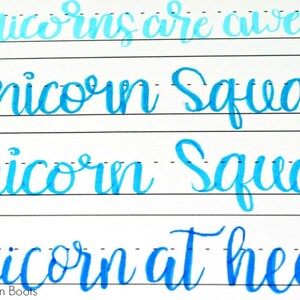 nicorns are awe
nicorn Squa
nicorn Squa
icorn at hea
n Boots